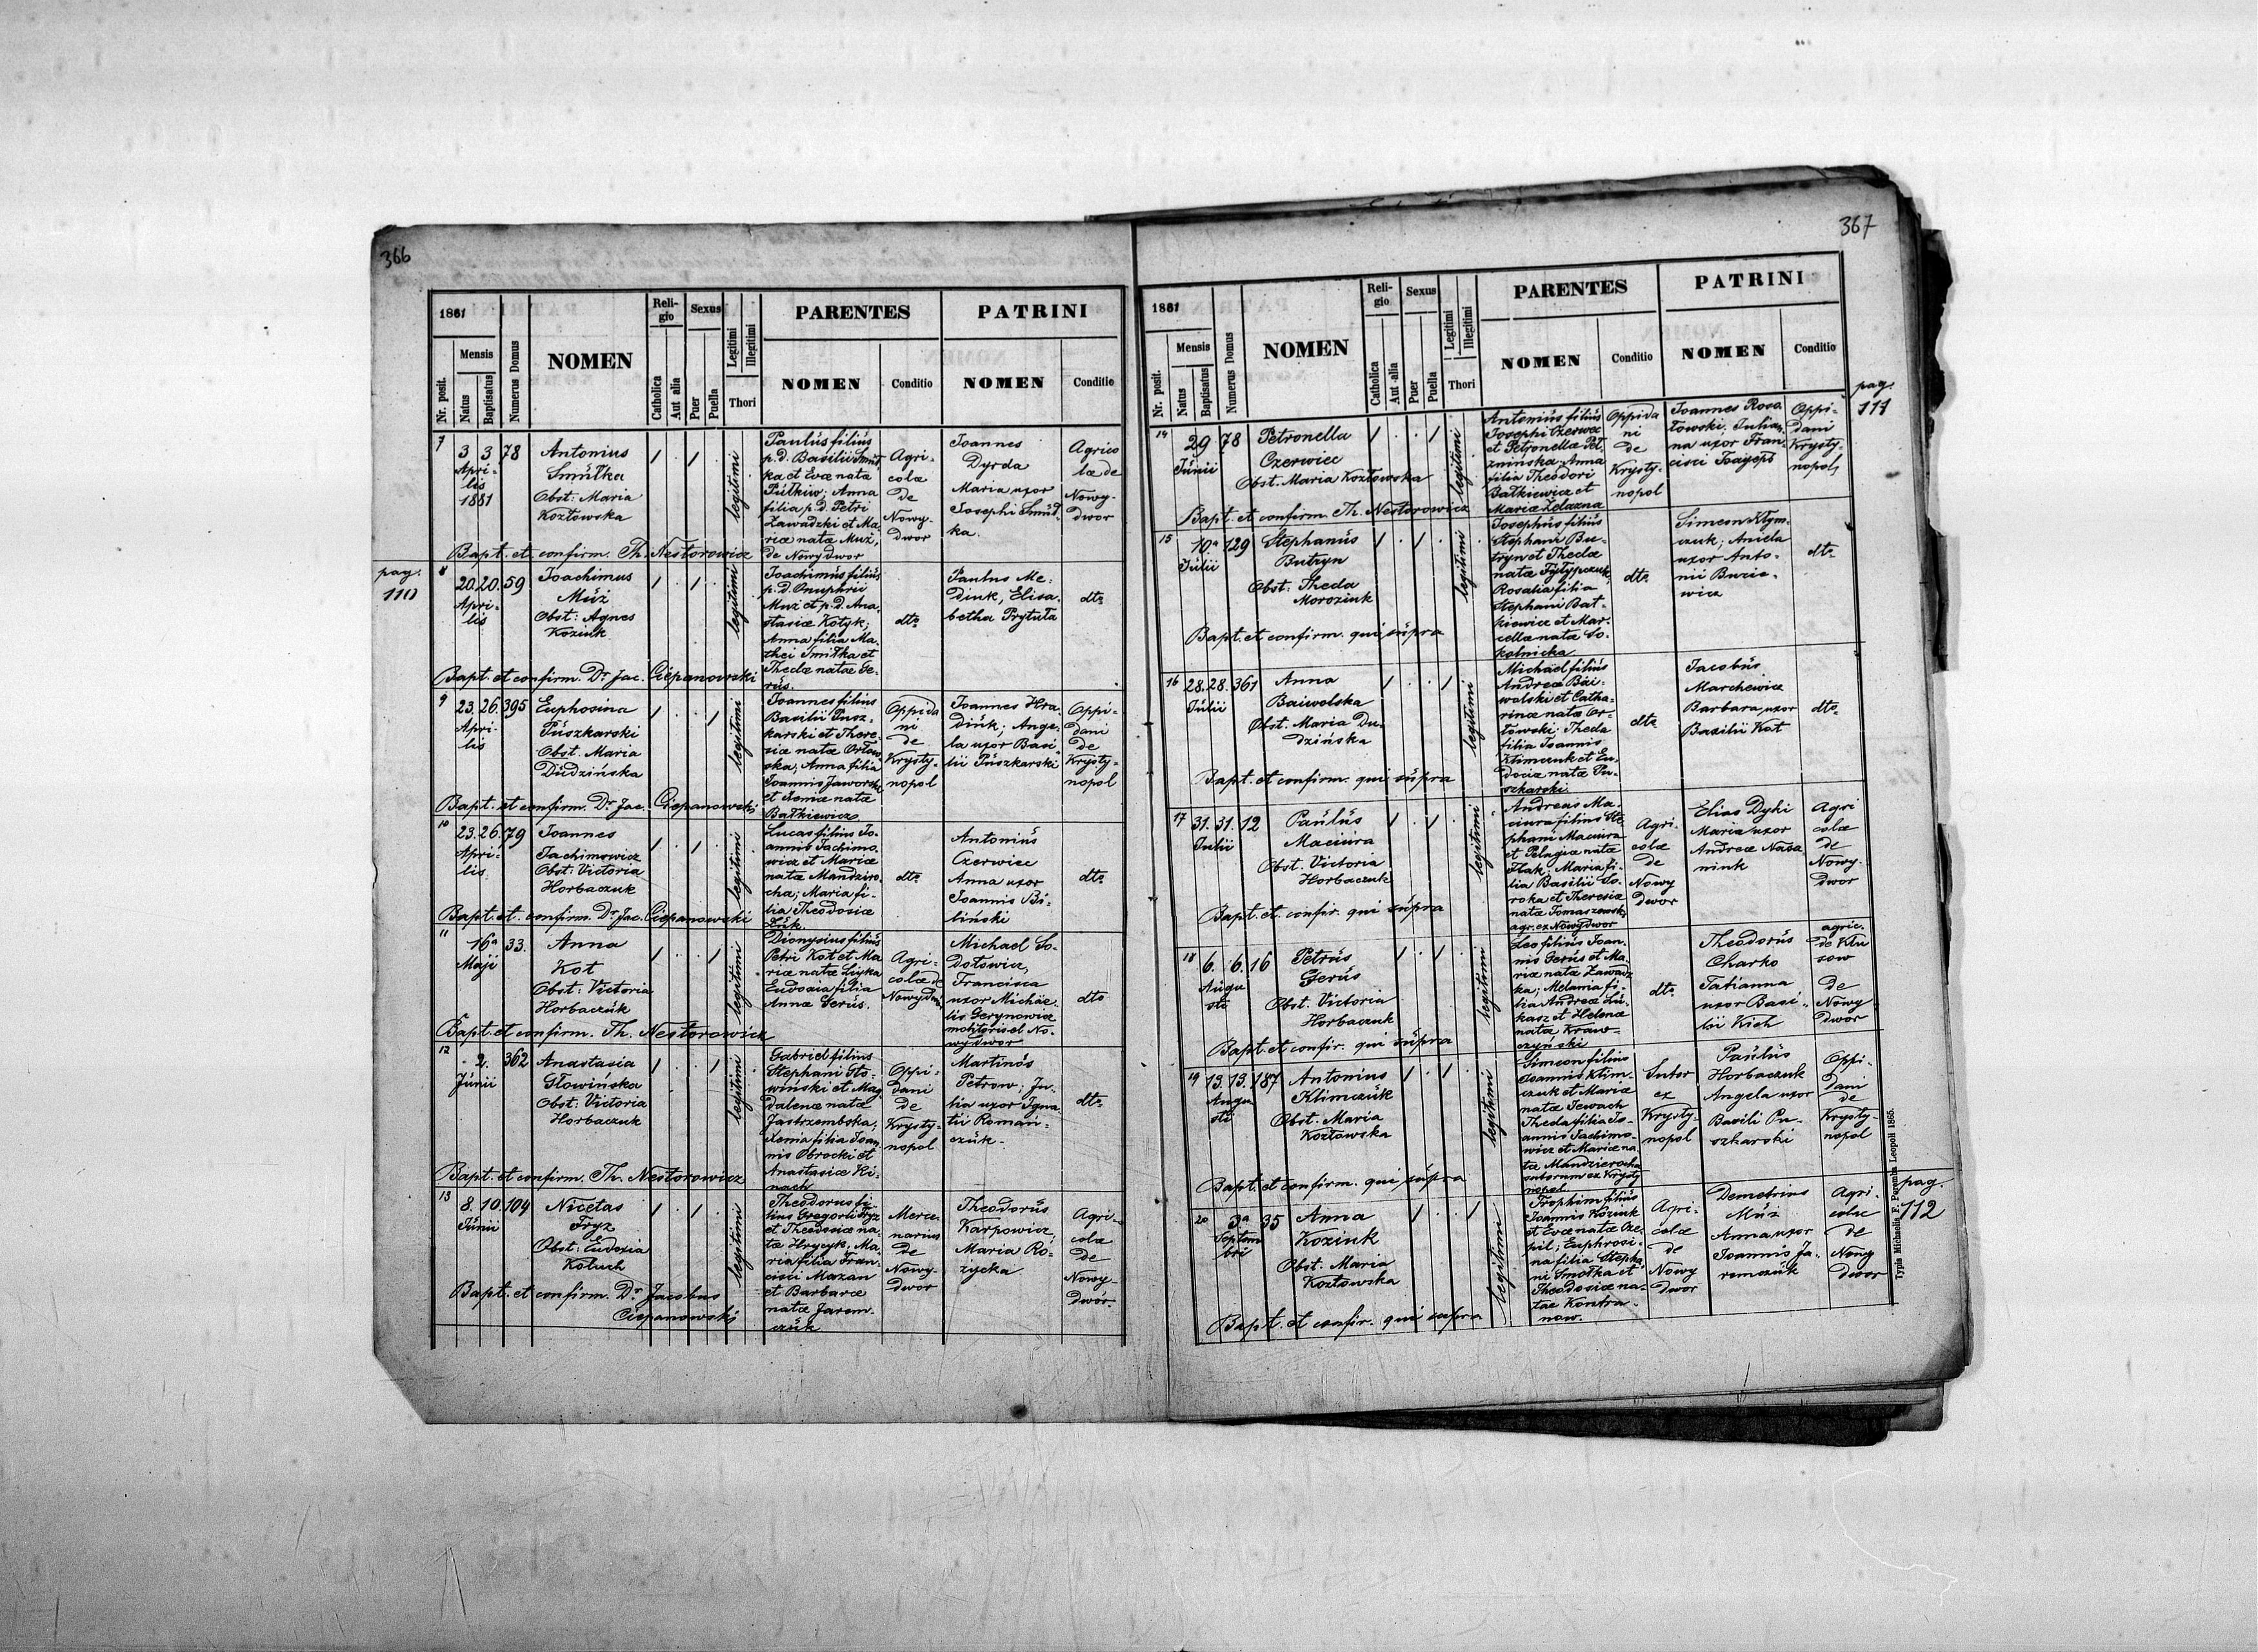 366
1881
Reli-
gio
Sexus
Legitimi
Illegitimi
PARENTES
PATRINI
Nr. posit.
Mensis
Natus
Baptisatus
Numerus Domus
NOMEN
Catholica
Aut alia
Puer
Puella
Thori
NOMEN
Conditio
NOMEN
Conditio
7
3 3 78
Apri-
lis
1881
Antonius
Smútka
Obst: Maria
Kozłowska
legitimi
Paulus filius
p.d. Basilii Smút
ka et Evæ nata
Pútkiw; Anna
filia p.d. Petri
Zawadzki et Ma
riæ natæ Muż,
de Nowydwor
Agri-
colæ
de
Nowy-
dwor
Joannes
Dyrda
Maria uxor
Josephi Smút-
ka.
Agrico
læ de
Nowy-
dwor
Bapt. et confirm. Th. Nestorowicz
pag.
110
8
20. 20. 59
Apri-
lis
Joachimus
Muż
Obst: Agnes
Koziuk
legitimi
Joachimus filius
p.d. Onuphrii
Muż et p.d. Ana
stasiæ Kotyk;
Anna filia Ma
thei Smitka et
Theclæ natæ Ge-
rús.
dto
Paulus Me-
diuk, Elisa-
betha Prytuła
dto
Bapt. et confirm. Dr. Jac. Ciepanowski
9
23. 26. 395
Apri-
lis
Euphosina
Púszkarski
Obst: Maria
Dúdzińska
legitimi
Joannes filius
Basilii Pusz-
karski et There-
siæ natæ Orłow
ska; Anna filia
Joannis Jaworski
et Xeniæ natæ
Batkiewicz
Oppida
ni
de
Krysty-
nopol
Joannes Hra
diúk; Ange-
la uxor Basi
lii Púszkarski
Oppi-
dani
de
Krysty-
nopol
Bapt. et confirm. Dr. Jac. Ciepanowski
10
23. 26. 79
Apri-
lis.
Joannes
Jachimowicz
Obst: Victoria
Horbaczuk
legitimi
Lucas filius Jo-
annis Jachimo
wicz et Mariæ
natæ Mandziro-
cha; Maria fi-
lia Theodosiæ
Lúk.
dto
Antoniús
Czerwiec
Anna uxor
Joannis Bi-
liński
dto
Bapt. et. confirm. Dr. Jac. Ciepanowski
11
16a 33.
Maji
Anna
Kot
Obst: Victoria
Horbaczúk
legitimi
Dionysius filius
Petri Kot et Ma
riæ natæ Liyka
Eudocia filia
Annæ Gerús.
Agri-
colæ de
Nowydwor
Michael So-
dotowicz,
Francisca
uxor Michae-
lis Gerynowicz
molitoris el No-
wydwor
dto
Bapt. et confirm. Th. Nestorowicz
12
2. 362
Júnii
Anastasia
Głowińska
Obst: Victoria
Horbaczuk
legitimi
Gabriel filius
Stephani Gło-
wiński et Mag
dalenæ natæ
Jastrzembska;
Xenia filia Joan
nis Obrocki et
Anastasiæ Ki-
nach
Oppi-
dani
de
Krysty-
nopol
Martinús
Petrow; Ju-
lia uxor Igna
tii Román-
czúk.
dto
Bapt. et confirm. Th. Nestorowicz
13
8. 10. 104
Júnii
Nicetas
Fryz
Obst: Eudoxia
Koluch
legitimi
Theodorus fi-
lius Gregorii Fryz
et Theodosiæ na-
tæ Hrycyk. Ma
ria filia Fran-
cisci Mazan
et Barbaræ
natæ Jarem-
czúk
Merce-
narius
de
Nowy-
Dwor
Theodorús
Karpowicz;
Maria Ro-
życka
Agri-
colæ
de
Nowy-
Dwór.
Bapt. et confirm. Dr. Jacobus
Ciepanowski
367
1881
Reli-
gio
Sexus
Legitimi
Illegitimi
PARENTES
PATRINI
Nr. posit.
Mensis
Natus
Baptisatus
Numerus Domus
NOMEN
Catholica
Aut alia
Puer
Puella
Thori
NOMEN
Conditio
NOMEN
Conditio
pag.
111
14
29 78
Júnii
Petronella
Czerwiec
Obst. Maria Kozłowska
legitimi
Antoniús filius
Josephi Czerwiec
et Petronellæ Pel
zninśka. Anna
filia Theodori
Batkiewicz et
Mariæ Zelazna
Oppida
ni
de
Krysty-
nopol
Joannes Rosa
łowski. Julia-
na uxor Fran
cisci Joayeps
Oppi-
dani
Krysty-
nopol
Bapt. et confirm. Th. Nestorowicz
15
10a 129
Júlii
Stephanús
Butryn
Obst. Theda
Moroziuk
legitimi
Josephús filiús
Stephani Bu-
tryn et Theclæ
natæ Fytypczuk
Rosalia filia
Stephani Bat-
kiewicz et Mar-
cellæ natæ So-
kolnicka
dto
Simeon Klym
czuk; Aniela
uxor Anto-
nii Buzie-
wicz
dto
Bapt. et confirm. qui súpra
16
28. 28. 361
Júlii
Anna
Baiwolska
Obst. Maria Du-
dzińska
legitimi
Michael filiús
Andreæ Bai-
wolski et Catha-
rinæ natæ Or-
łowski; Theda
filia Joannis
Klimczuk et Eu-
dociæ natæ Pu-
szkarski
dto
Jacobús
Marchewicz
Barbara uxor
Basilii Kot
dto
Bapt. et confirm. qui súpra
17
31. 31. 12
Julii
Paúlús
Maciúra
Obst. Victoria
Horbaczuk
legitimi
Andreas Ma-
ciura filius Ste
phani Maciura
et Pelagiæ natæ
Flak; Maria fi-
lia Basilii So-
roka et Theresiæ
natæ Tomaszewski
agr. ex Nowydwor
Agri-
colæ
de
Nowy
dwor
Elias Dyki
Maria uxor
Andreæ Nasa
niuk
Agri
colæ
de
Nowy-
dwor
Bapt. et. confir. qui súpra
18
6. 6. 16
Augu
sti
Petrús
Gerús
Obst. Victoria
Horbaczuk
legitimi
Leo filiús Joan-
nis Gerús et Ma-
riæ natæ Zawadz
ka; Melania fi-
lia Andreæ Lú-
kasz et Helenæ
natæ Kraw-
czyński
dto
Theodorús
Charko
Tatianna
uxor Basi-
lii Kich
agric.
de Klu
sow
de
Nowy
dwor
Bapt. et confir. qui súpra
19
13. 13. 187
Augu
sti
Antonius
Klimczúk
Obst. Maria
Kozłowska
legitimi
Simeon filius
Joannis Klim-
czuk et Mariæ
natæ Jewach
Thecla filia Jo-
annis Jachimo-
wicz et Mariæ na
tæ Mandzierocha
sutorum ex Krysty
nopol
Sutor
ex
Krysty-
nopol
Paúlús
Horbaczuk
Angela uxor
Basili Pu-
szkarski
Oppi-
dani
de
Krysty-
nopol
Bapt. et confirm. qui súpra
pag.
112
20
3a 35
Septem
bri
Anna
Koziuk
Obst. Maria
Kozłowska
legitimi
Trophim filiús
Joannis Koziuk
et Evæ natæ Cze-
pil; Euphrosi-
na filia Stepha
ni Smotka et
Theodosiæ na-
tæ Kontra-
now.
Agri-
colæ
de
Nowy
dwor
Demetrius
Múż
Anna uxor
Joannis Ja-
remczúk
Agri-
colæ
de
Nowy
dwor
Bapt. et confir. qui supra
Typis Michaelis F. Poremba Leopoli 1865.